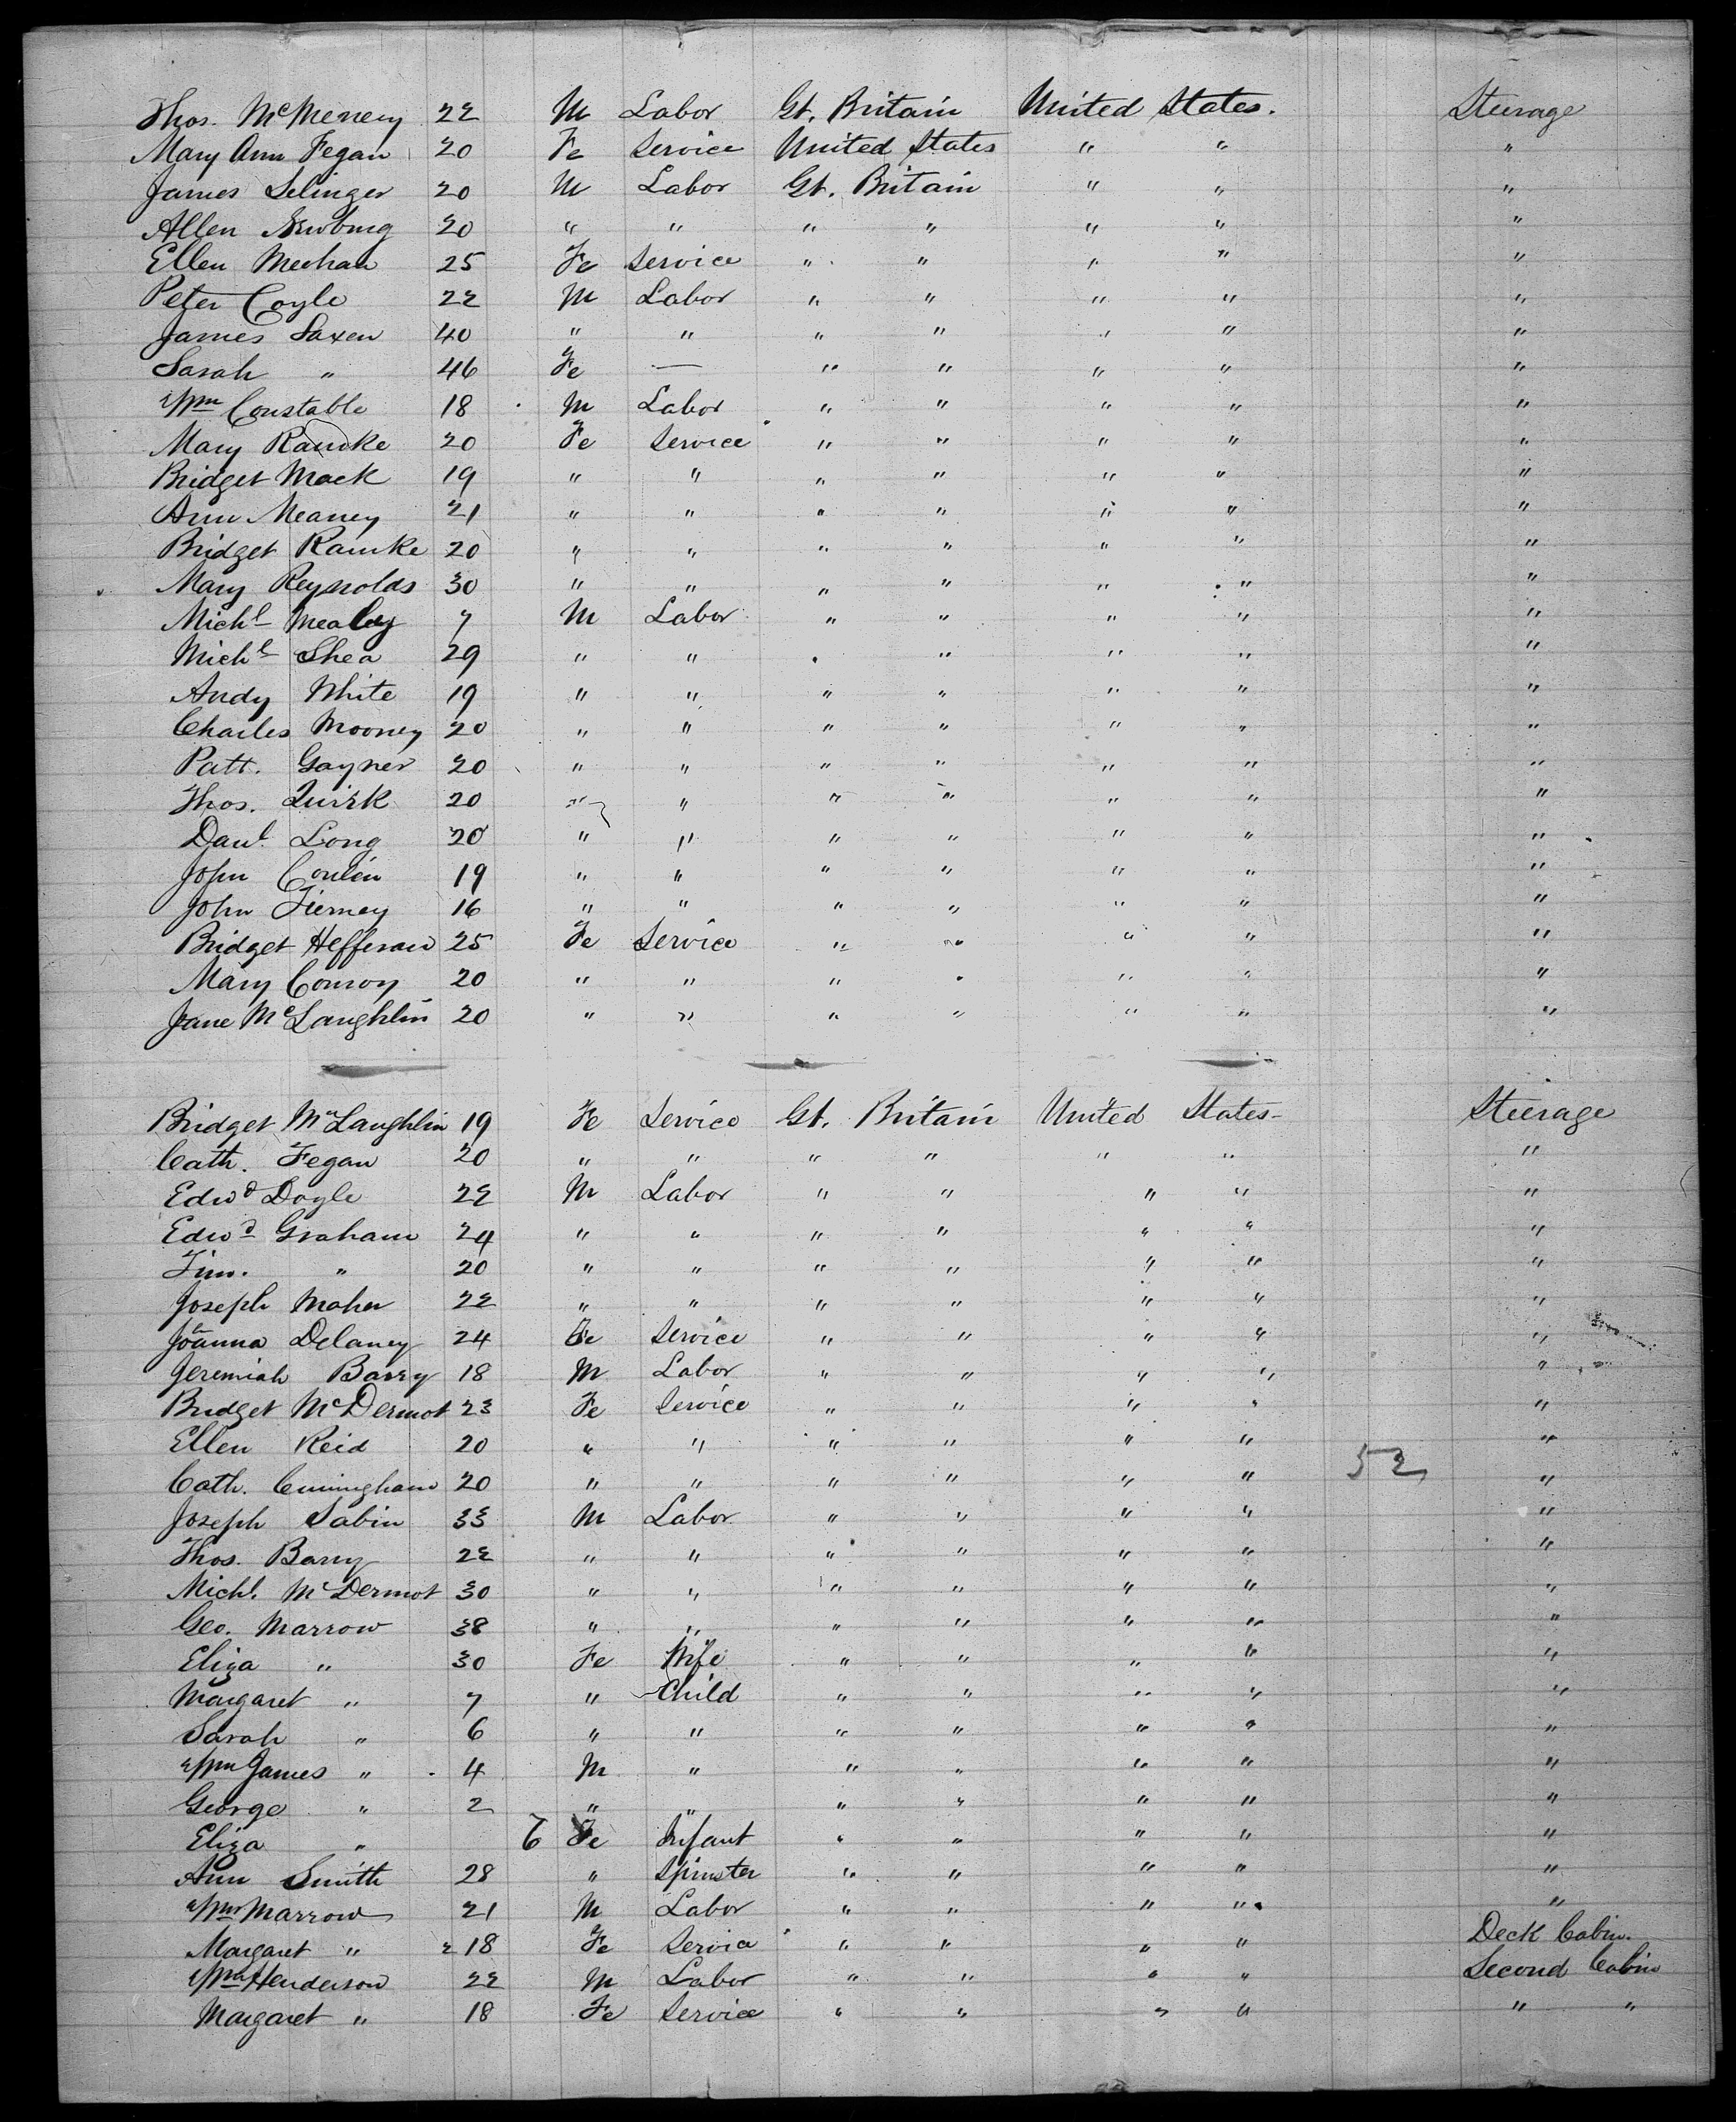 Thos. McMeneny 22 M Labor Gt. Britain United States. Steerage
Mary Ann Fegan 20 Fe Service United States " " "
James Selinger 20 M Labor Gt. Britain " " "
Allen Newburg 20 " " " " " " "
Ellen Meehan 25 Fe Service " " " " "
Peter Coyle 22 M Labor " " " " "
James Saxen 40 " " " " " " "
Sarah " 46 Fe — " " " " "
Wm Constable 18 M Labor " " " " "
Mary Rourke 20 Fe Service " " " " "
Bridget Mack 19 " " " " " " "
Ann Meaney 21 " " " " " " "
Bridget Rourke 20 " " " " " " "
Mary Reynolds 30 " " " " " " "
Michl Mealey 7 M Labor " " " " "
Michl Shea 29 " " " " " " "
Andy White 19 " " " " " " "
Charles Mooney 20 " " " " " " "
Patt. Gayner 20 " " " " " " "
Thos. Quirk 20 " " " " " " "
Danl. Long 20 " " " " " " "
John Conlin 19 " " " " " " "
John Tierney 16 " " " " " " "
Bridget Hefferan 25 Fe Service " " " " "
Mary Conroy 20 " " " " " " "
Jane McLaughlin 20 " " " " " " "
Bridget McLaughlin 19 Fe Service Gt. Britain United States Steerage
Cath. Fegan 20 " " " " " " "
Edwd Doyle 22 M Labor " " " " "
Edwd Graham 24 " " " " " " "
Tim. " 20 " " " " " " "
Joseph Maher 22 " " " " " " "
Joanna Delaney 24 Fe Service " " " " "
Jeremiah Barry 18 M Labor " " " " "
Bridget McDermot 23 Fe Service " " " " "
Ellen Reid 20 " " " " " " "
Cath. Cuningham 20 " " " " " " 52 "
Joseph Sabin 33 M Labor " " " " "
Thos. Barry 22 " " " " " " "
Michl. McDermot 30 " " " " " " "
Geo. Marrow 38 " " " " " " "
Eliza " 30 Fe Wife " " " " "
Margaret " 7 " Child " " " " "
Sarah " 6 " " " " " " "
Wm James " 4 M " " " " " "
George " 2 " " " " " " "
Eliza " 6 Fe Infant " " " " "
Ann Smith 28 " Spinster " " " " "
Wm Marrow 21 M Labor " " " " "
Margaret " 18 Fe Service " " " " Deck Cabin.
Wm Henderson 22 M Labor " " " " Second Cabin
Margaret " 18 Fe Service " " " " " "